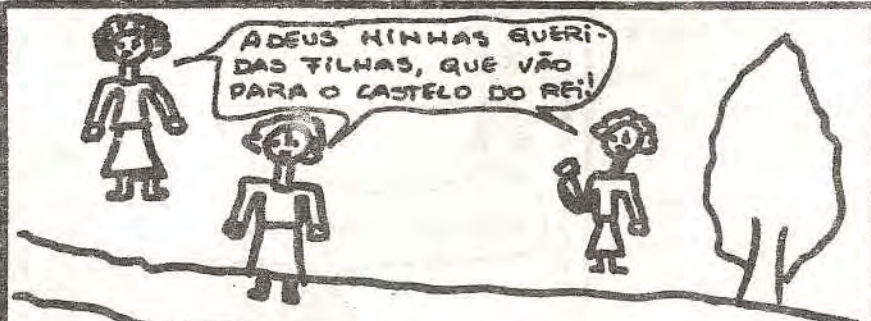 ADEUS MINHAS QUERI-
DAS FILHAS, QUE VÃO
PARA O CASTELO DO REI!